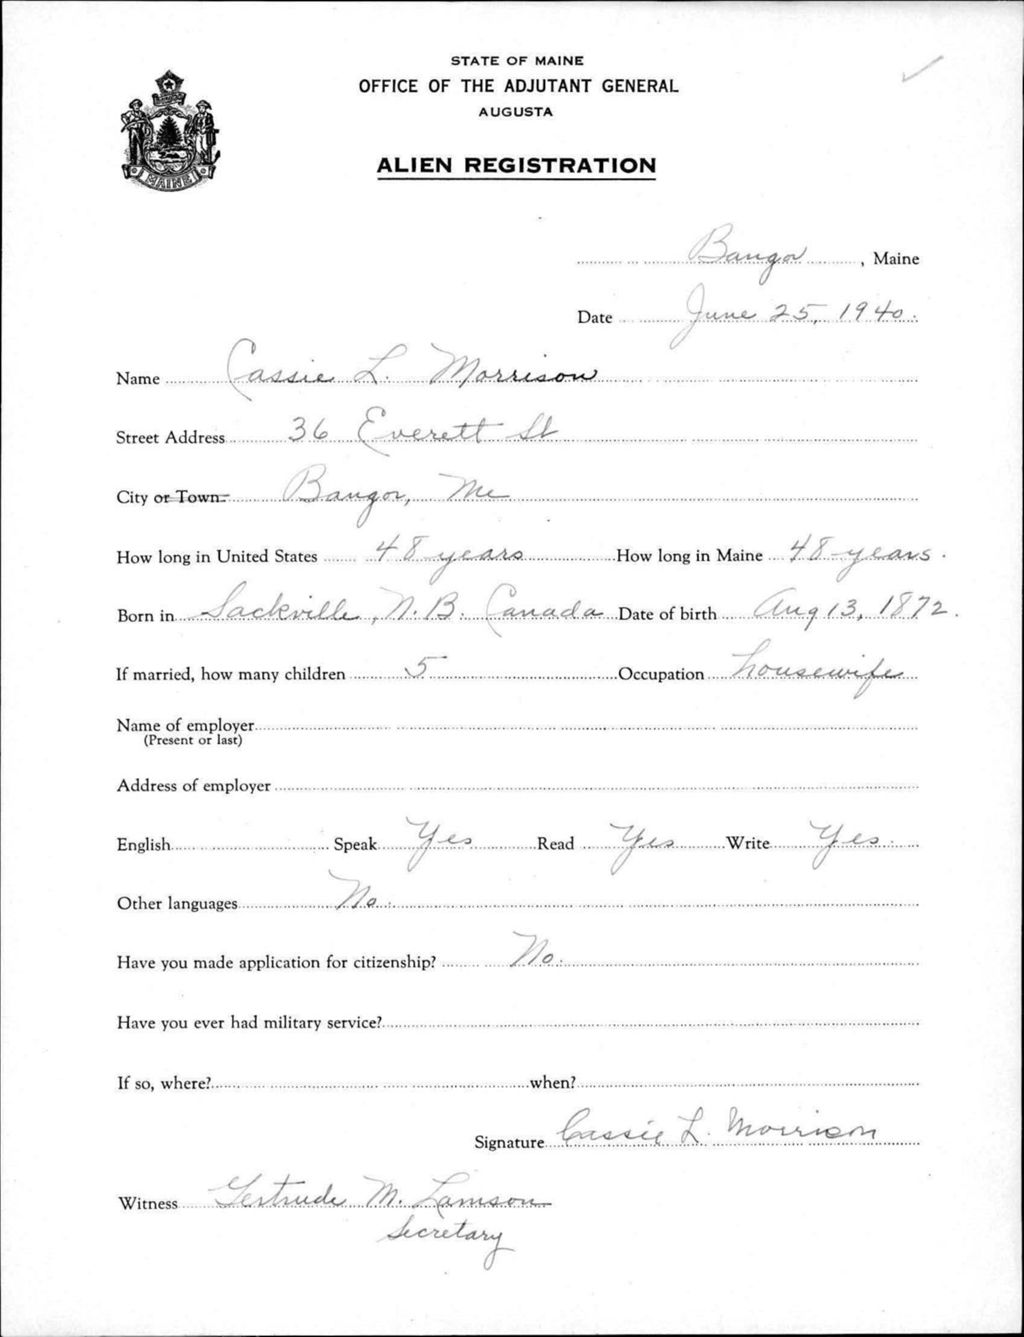 STATE OF MAINE
OFFICE OF THE ADJUTANT GENERAL
AUGUSTA
ALIEN REGISTRATION
MAINE
Bangor, Maine
Date June 25, 1940.
Name Cassie L. Morrison
Street Address 36 Everett St
City or Town Bangor, Me
How long in United States 48 years How long in Maine 48 years.
Born in Sackville, N.B. Canada Date of birth Aug 13, 1872.
If married, how many children 5 Occupation housewife
Name of employer
(Present or last)
Address of employer
English Speak Yes Read Yes Write Yes.
Other languages No.
Have you made application for citizenship? No.
Have you ever had military service?
If so, where? when?
Signature Cassie L. Morrison
Witness Gertrude M. Lamson
Secretary